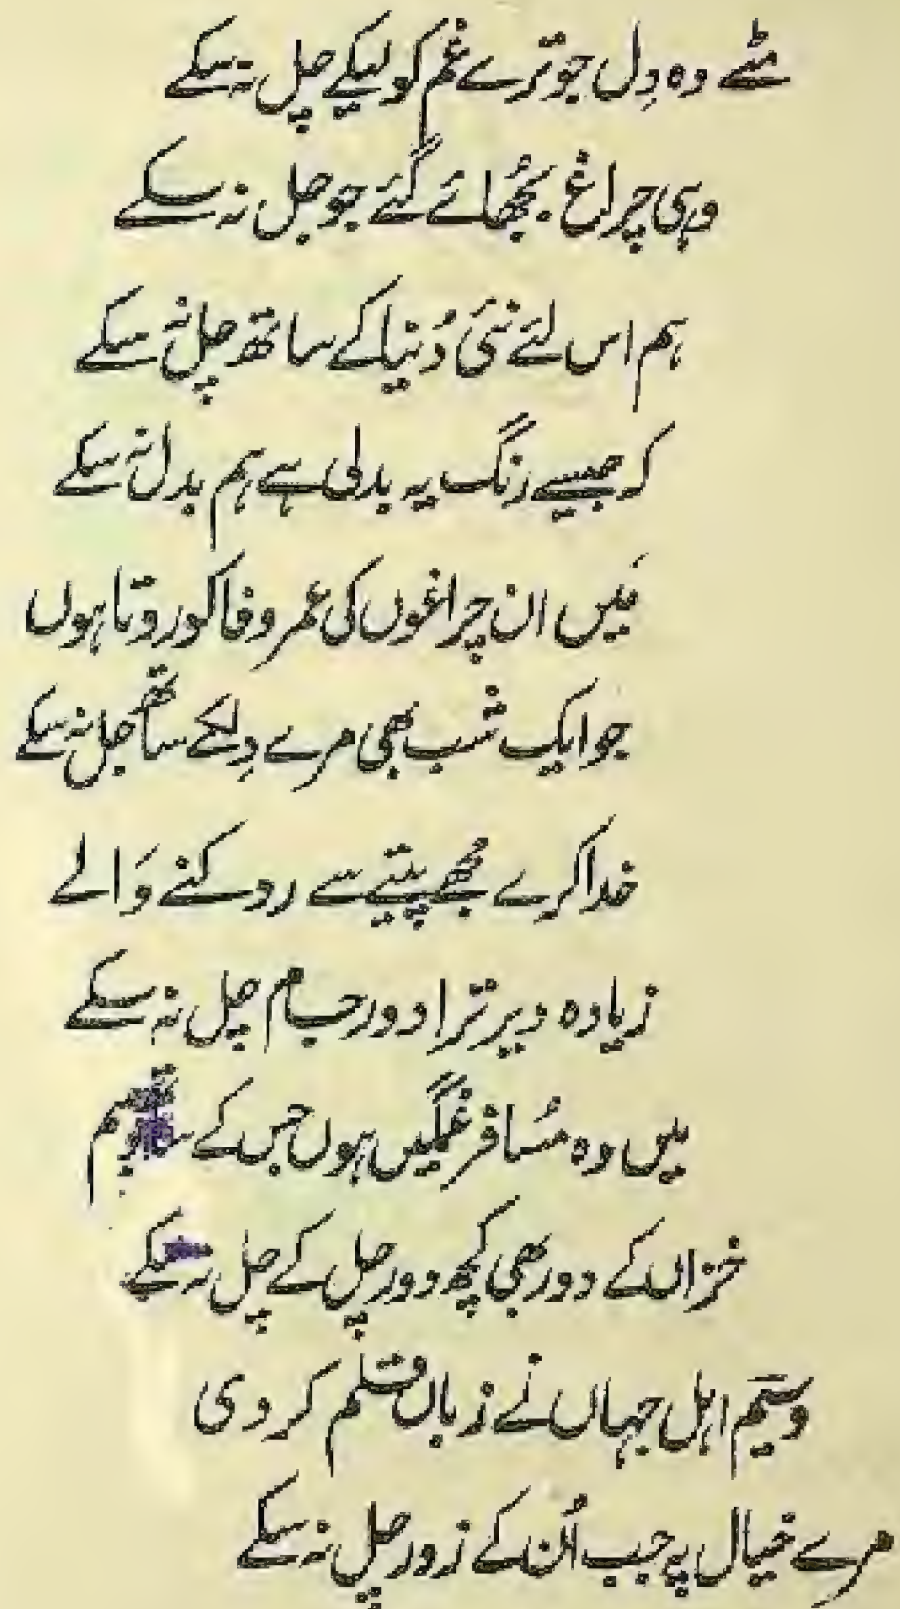 مٹے وہ دِل جو ترے غم کو لیکے چل نہ سکے
وہی چراغ بجُھائے گئے جو جل نہ سکے
ہم اس لئے نئی دُنیا کے ساتھ چل نہ سکے
کہ جیسے رنگ یہ بدلی ہے ہم بدل نہ سکے
مَیں ان چراغوں کی عمرِ وفا کو روتا ہوں
جو ایک شب بھی مرے دِل کے ساتھ جل نہ سکے
خدا کرے مجھے پینے سے روکنے وَالے
زیادہ دیر ترا دورِ جام چل نہ سکے
میں وہ مُسافرِ غمگیں ہوں جس کے ساتھ وسیم
خزاں کے دور بھی کچھ دور چل کے چل نہ سکے
وسیَم اہلِ جہاں نے زباں قلم کر دی
مرے خیال پہ جب اُن کے زور چل نہ سکے